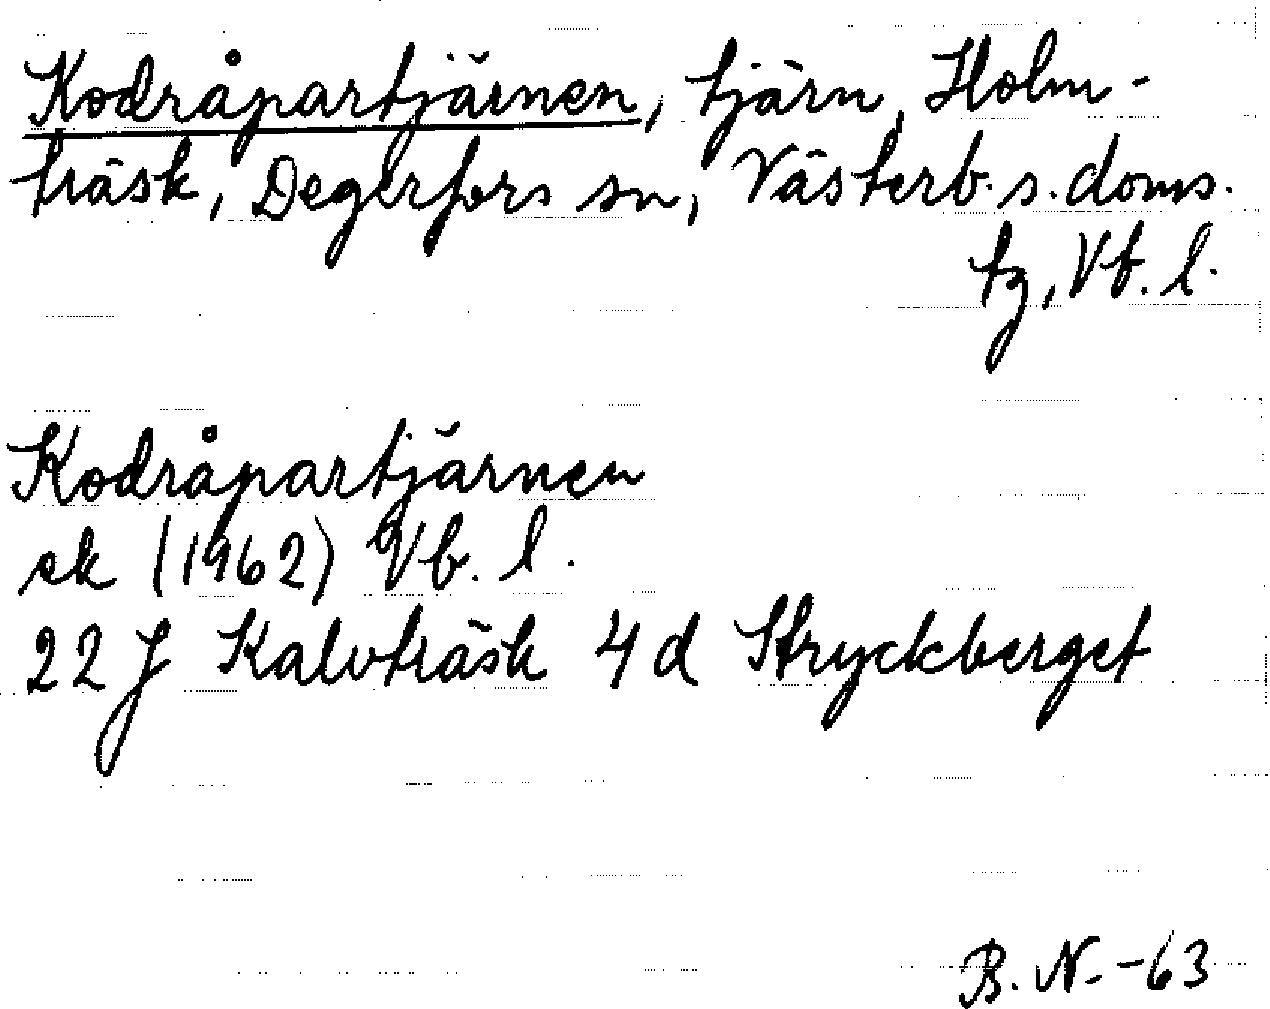 Kodråpartjärnen, tjärn, Holm-
träsk, Degerfors sn, Västerb. s. doms.
tg, Vb. l.
Kodråpartjärnen
ek (1962) Vb. l.
22 J Kalvträsk 4 d Stryckberget
B. N. -63